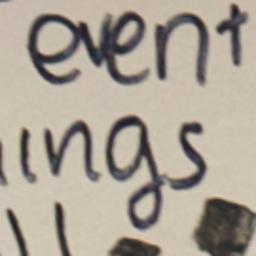 event
ings